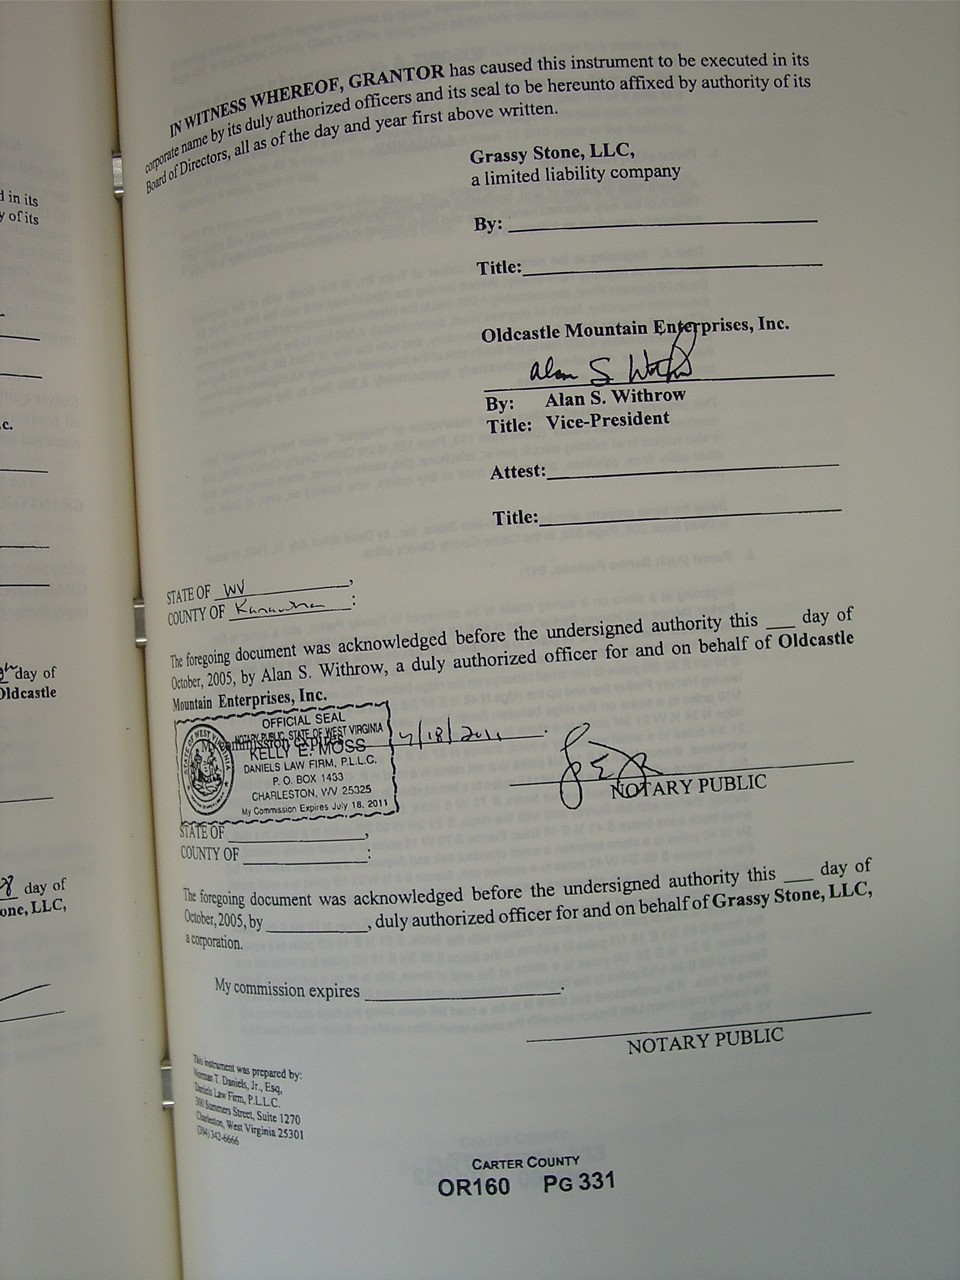 IN WITNESS WHEREOF, GRANTOR has caused this instrument to be executed in its
corporate name by its duly authorized officers and its seal to be hereunto affixed by authority of its
Board of Directors, all as of the day and year first above written.
Grassy Stone, LLC,
a limited liability company
By:
Title:
Oldcastle Mountain Enterprises, Inc.
Alan S
By: Alan S. Withrow
Title: Vice-President
Attest:
Title:
STATE OF WV ,
COUNTY OF Kanawha :
The foregoing document was acknowledged before the undersigned authority this ___ day of
October, 2005, by Alan S. Withrow, a duly authorized officer for and on behalf of Oldcastle
Mountain Enterprises, Inc.
OFFICIAL SEAL
NOTARY PUBLIC, STATE OF WEST VIRGINIA
My commission expires 7/18/2011 .
KELLY E. MOSS
DANIELS LAW FIRM, P.L.L.C.
P. O. BOX 1433
CHARLESTON, WV 25325
My Commission Expires July 18, 2011
NOTARY PUBLIC
STATE OF ,
COUNTY OF :
The foregoing document was acknowledged before the undersigned authority this ___ day of
October, 2005, by ___, duly authorized officer for and on behalf of Grassy Stone, LLC,
a corporation.
My commission expires .
NOTARY PUBLIC
This instrument was prepared by:
Norman T. Daniels, Jr., Esq.
Daniels Law Firm, P.L.L.C.
300 Summers Street, Suite 1270
Charleston, West Virginia 25301
(304) 342-6666
CARTER COUNTY
OR160 PG 331
d in its
y of its
c.
day of
Oldcastle
day of
one, LLC,